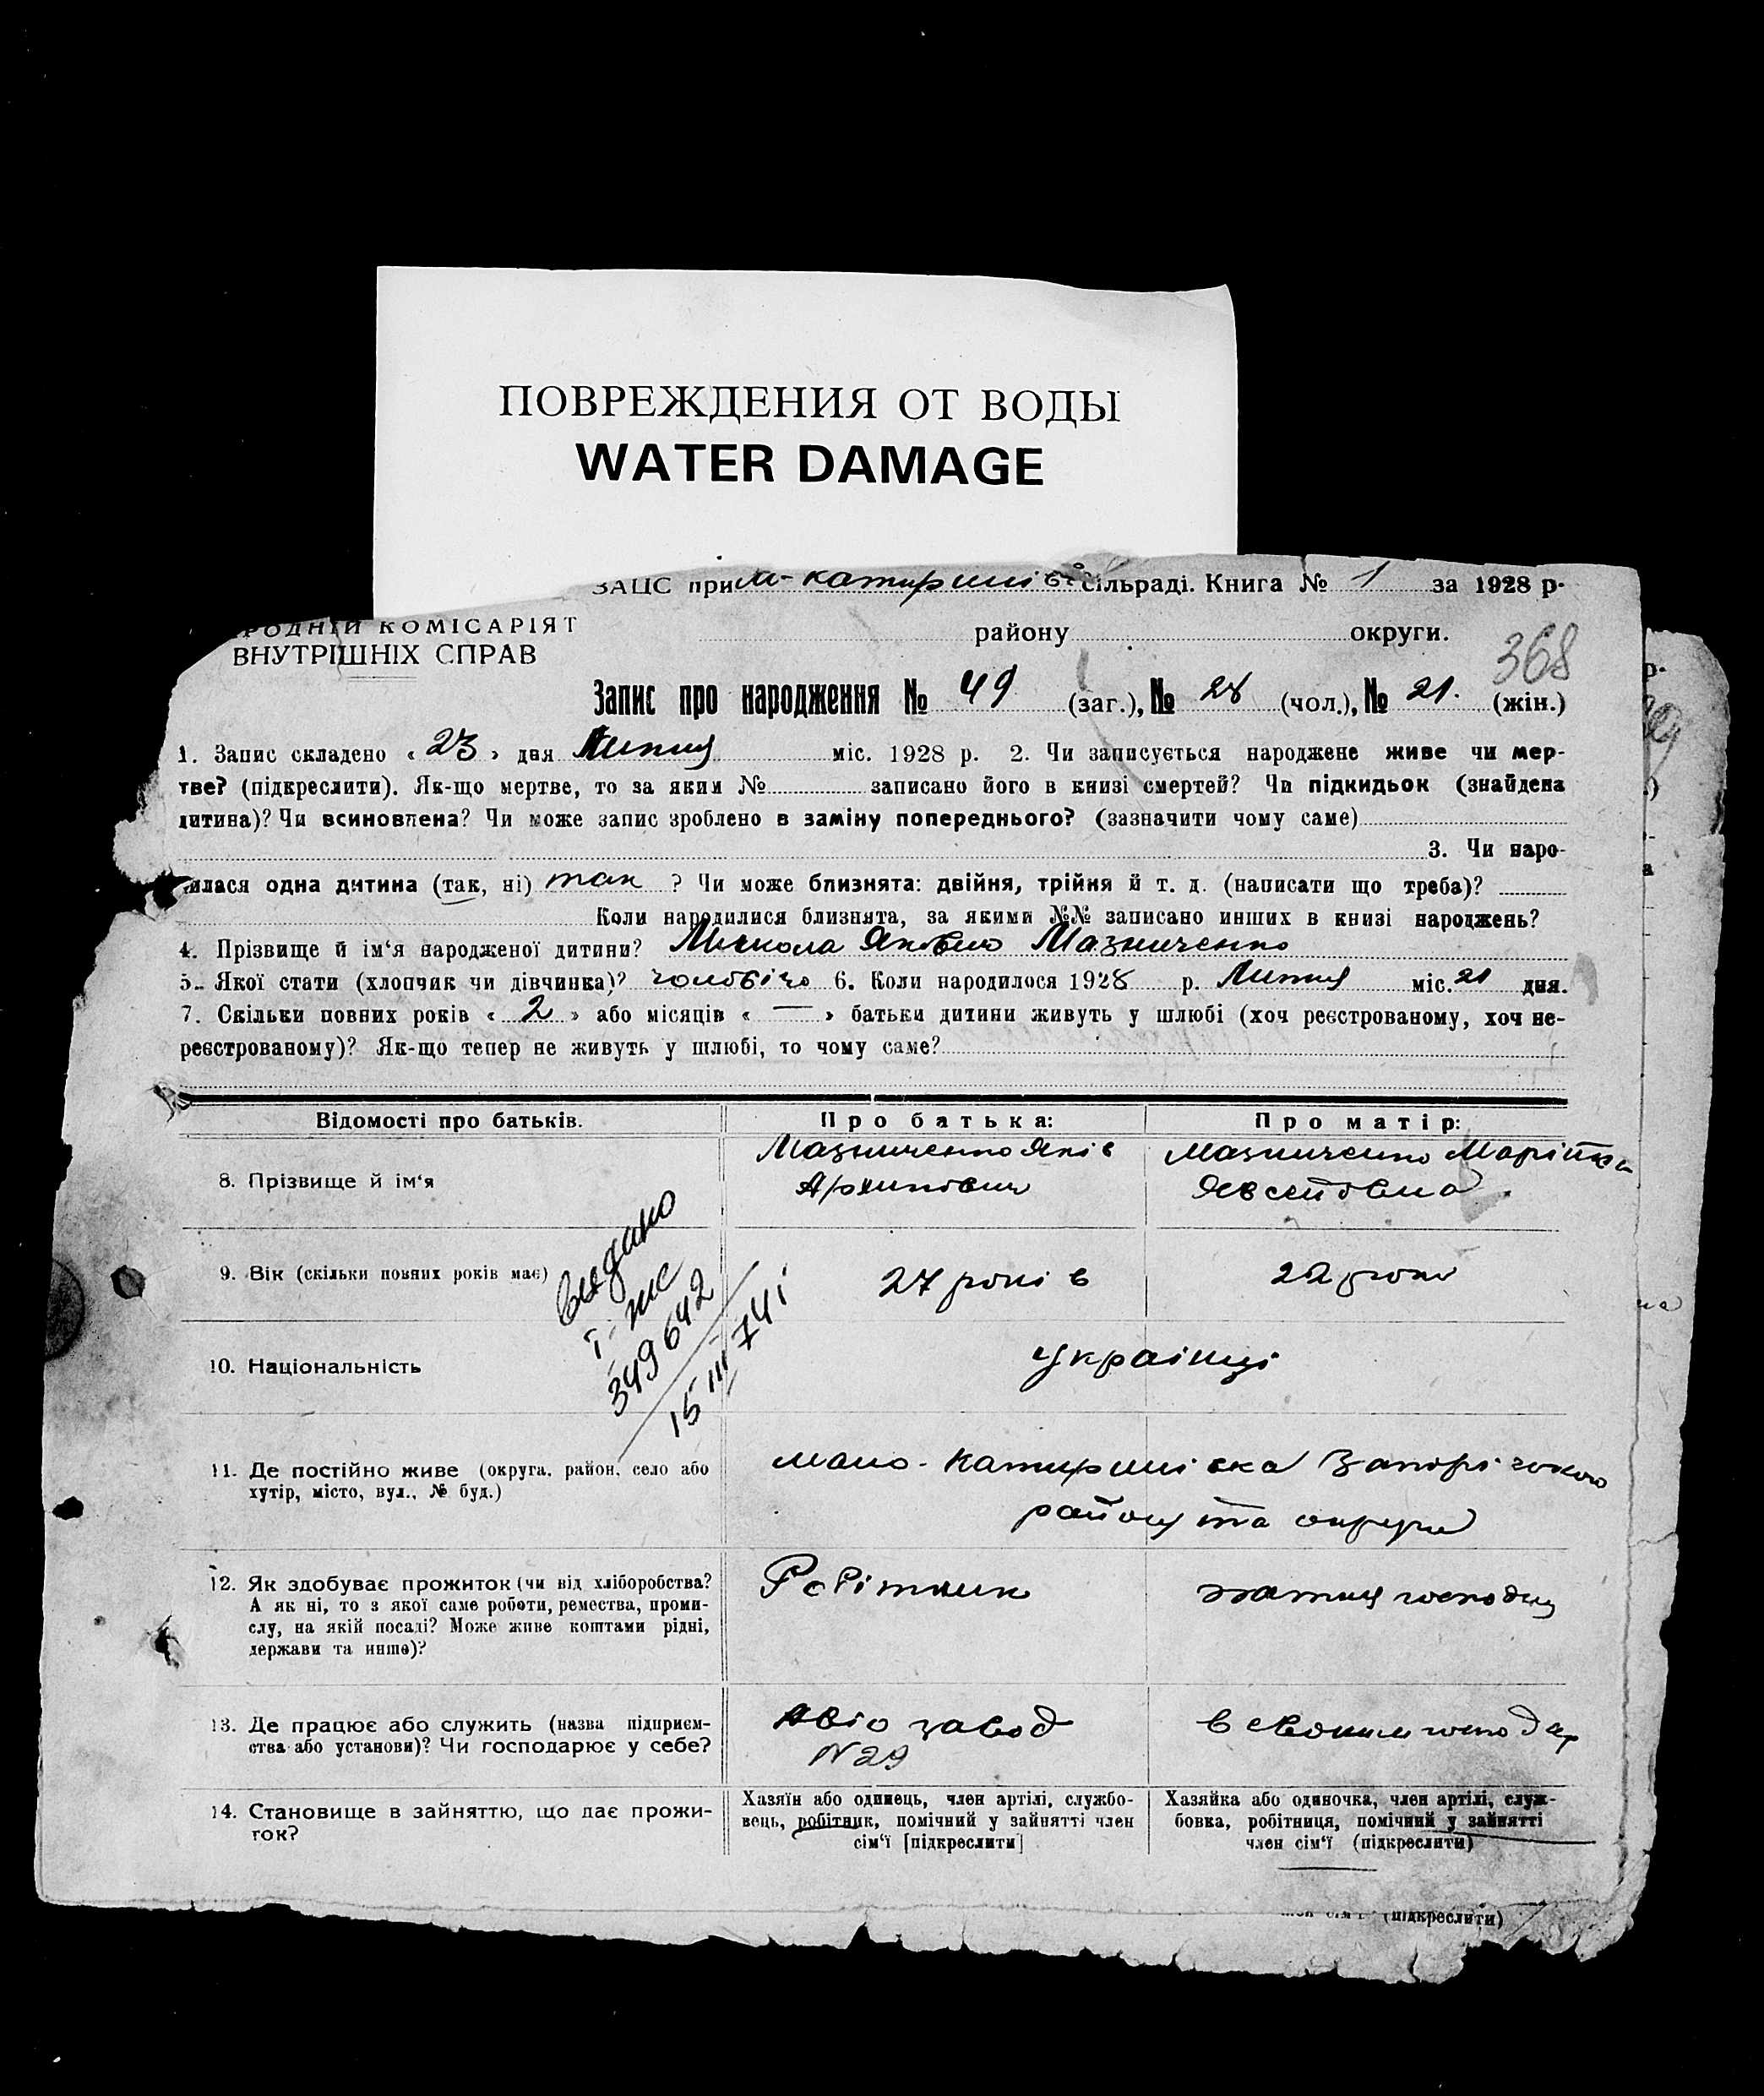 ПОВРЕЖДЕНИЯ ОТ ВОДЫ
WATER DAMAGE
ЗАЦС при м-катирині сільраді. Книга № 1 за 1928 р.
РОДНІЙ КОМІСАРІЯТ
ВНУТРІШНІХ СПРАВ
району округи.
368
Запис про народження № 49 (заг.), № 28 (чол.), № 21. (жін.)
1. Запис складено « 23 » дня Липня міс. 1928 р. 2. Чи записується народжене живе чи мер-
тве? (підкреслити). Як-що мертве, то за яким № записано його в книзі смертей? Чи підкидьок (знайдена
дитина)? Чи всиновлена? Чи може запис зроблено в заміну попереднього? (зазначити чому саме)
3. Чи наро-
дилася одна дитина (так, ні) так ? Чи може близнята: двійня, трійня й т. д. (написати що треба)?
Коли народилися близнята, за якими №№ записано инших в книзі народжень?
4. Прізвище й ім‘я народженої дитини? Микола Якович Мазниченко
5. Якої стати (хлопчик чи дівчинка)? 6. Коли народилося 1928 р. Липня міс. 21 дня.
7. Скільки повних років « 2 » або місяців « — » батьки дитини живуть у шлюбі (хоч реєстрованому, хоч не-
реєстрованому)? Як-що тепер не живуть у шлюбі, то чому саме?
Відомості про батьків. Про батька: Про матір:
8. Прізвище й ім‘я Мазниченко Яків Мазниченко
Архипович
9. Вік (скільки повних років має) 27 років 22 роки
видано
349642
15 III 74
10. Національність українці
11. Де постійно живе (округа, район, село або
хутір, місто, вул., № буд.)
мало-Катиринівка Запорізького
району та округи
12. Як здобуває прожиток (чи від хліборобства?
А як ні, то з якої саме роботи, ремества, проми-
слу, на якій посаді? Може живе коштами рідні,
держави та инше)?
Робітник
13. Де працює або служить (назва підприєм-
ства або установи)? Чи господарює у себе?
Авіо завод
N 29
в своїм господар
14. Становище в зайняттю, що дає прожи-
ток?
Хазяїн або одинець, член артілі, службо-
вець, робітник, помічний у зайнятті член
сім‘ї [підкреслити]
Хазяйка або одиночка, член артілі, служ-
бовка, робітниця, помічний у зайнятті
член сім‘ї (підкреслити)
(підкреслити)